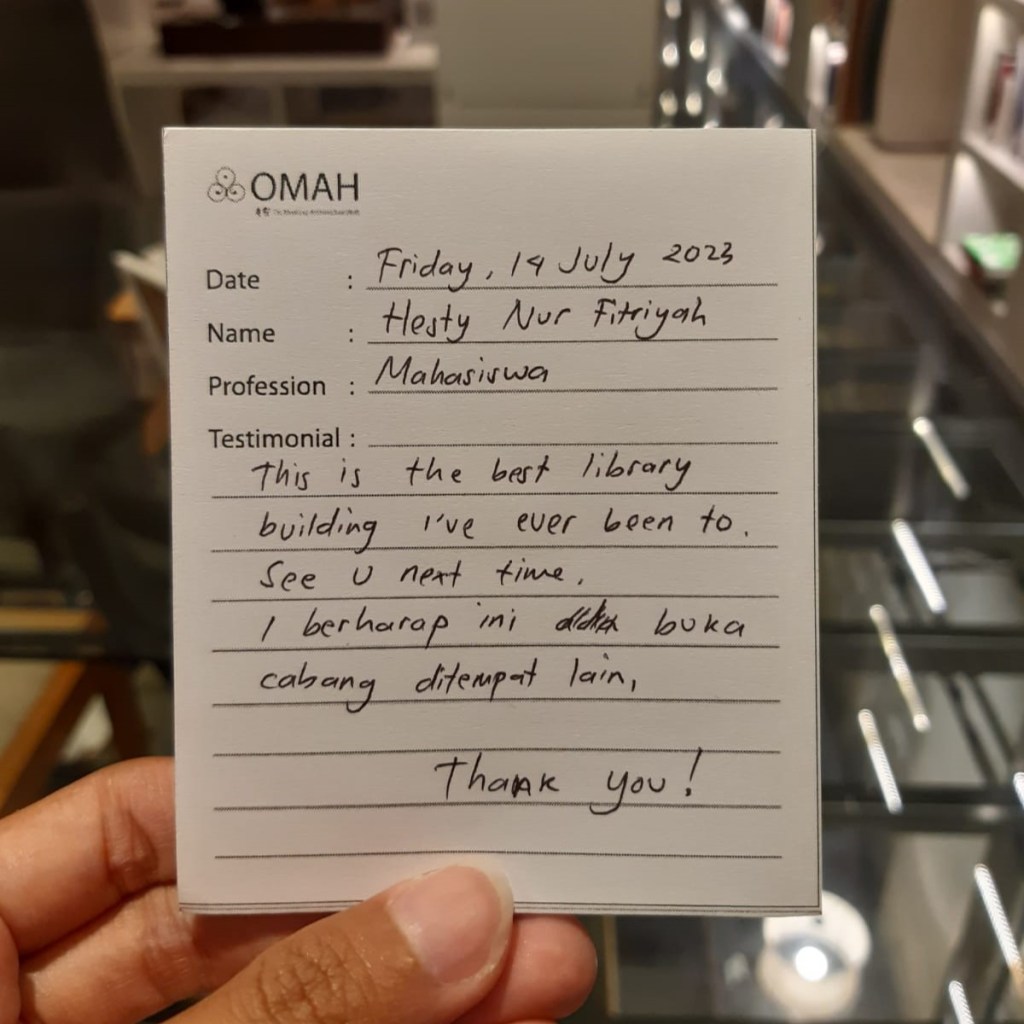 OMAH
Date : Friday, 14 July 2023
Name : Hesty Nur Fitriyah
Profession : Mahasiswa
Testimonial :
This is the best library
building I've ever been to.
See U next time.
I berharap ini buka
cabang ditempat lain,
Thank you!